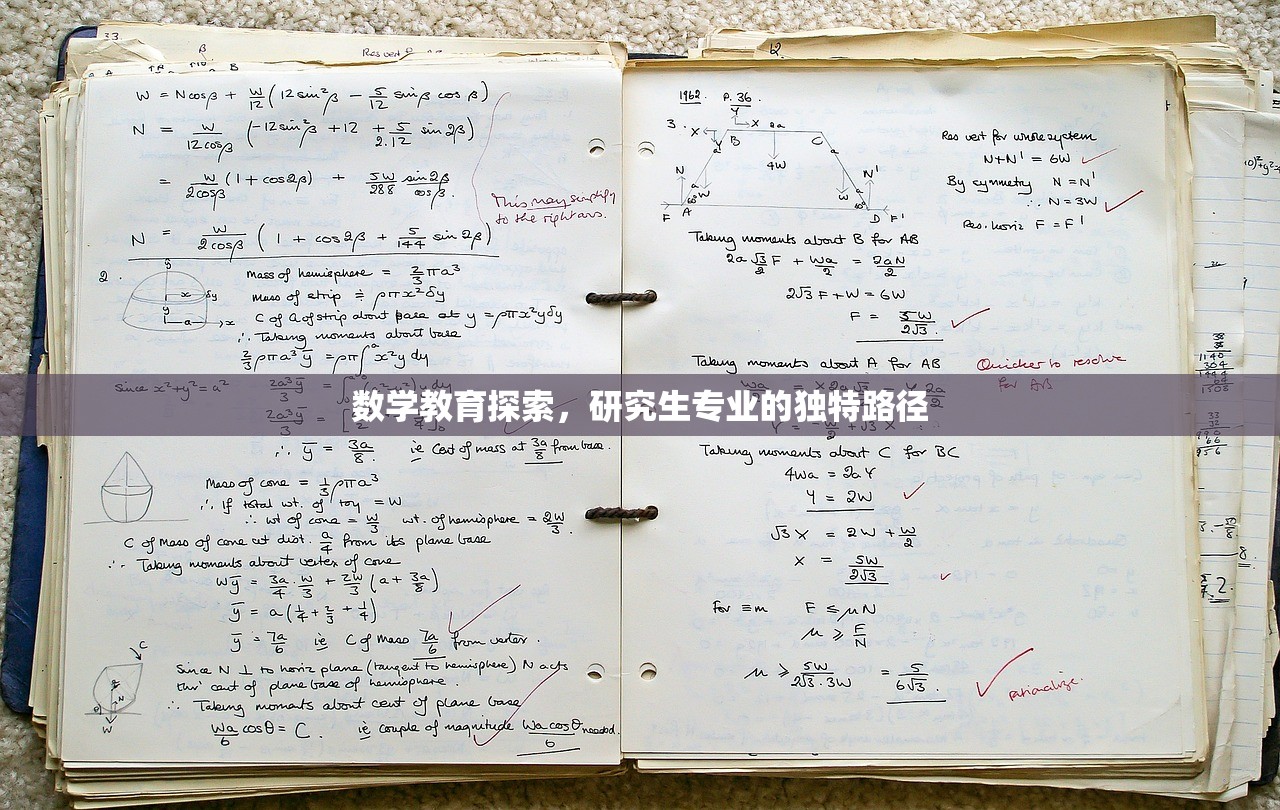 33.
Res vert
β
A
B
W = N cosβ + W/12 (12 sin²β − 5/12 sinβ cosβ)
N = W/12cosβ (−12 sin²β + 12 + 5/2.12 sin 2β)
= W/2cosβ (1 + cos2β) + 5W/288 sin2β/cosβ.
This may simplify
to the right ans.
N = W/2cosβ (1 + cos2β + 5/144 sin 2β)
2.
Mass of hemisphere = 2/3 πa³
mass of strip ≑ ρπx²δy
C of G of strip about base at y = ρπx²yδy
∴ Taking moments about base
2/3 ρπa³ȳ = ρπ∫x²y dy
since x²+y²=a²
2a³ȳ/3
数学教育探索，研究生专业的独特路径
2a³ȳ/3
∴ ȳ = 3a/8. ie Cent of mass at 3a/8 from base.
Mass of cone = 1/3 ρπa³
∴ If total wt. of toy = W
∴ wt of cone = W/3 wt. of hemisphere = 2W/3.
C of Mass of cone at dist. a/4 from its plane base
∴ Taking moments about vertex of cone
Wȳ = 3a/4 . W/3 + 2W/3 (a + 3a/8)
ȳ = a(1/4 + 2/3 + 1/4)
ȳ = 7a/6 ie C of Mass 7a/6 from vertex.
C
W
Since N ⊥ to horiz plane (tangent to hemisphere) N acts
thro' cent of plane base of hemisphere.
∴ Taking moments about cent of plane base
Wa/6 cosθ = C. ie couple of magnitude Wa cosθ/6 needed.
1962. P. 36.
3.
X
Y
X
2a
B
C
4W
N
N'
W
W
F
A
60°
60°
D
F'
Res vert for whole system
N+N' = 6W
By symmetry N = N'
∴ N = 3W
Res. horiz F = F'
Taking moments about B for AB
2a √3/2 F + Wa/2 = 2aN/2
2√3 F + W = 6W
F = 5W/2√3.
Taking moments about A for AB
Quicker to resolve
for AB
Taking moments about C for BC
4Wa = 2aY
Y = 2W
√3 X = 2W + W/2
X = 5W/2√3
For ≡m F ≤ μN
μ ≥ F/N
μ ≥ 5W/2√3.3W = 5/6√3.
rationalize.